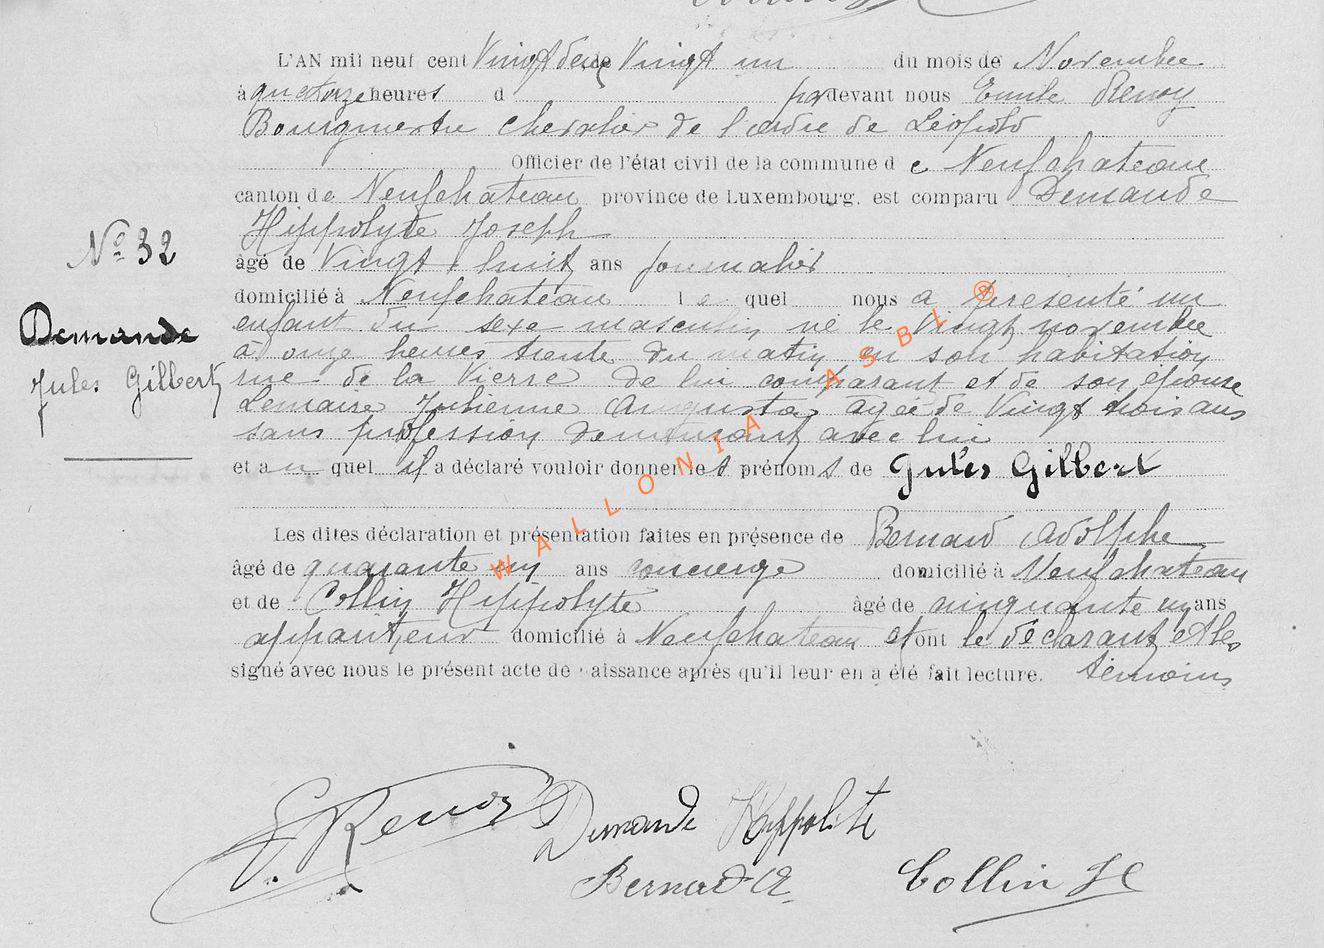 L'AN mil neuf cent Vingt deux Vingt un du mois de Novembre
à quatorze heures d par devant nous Emile Renoy
Bourgmestre Chevalier de l'ordre de Léopold
Officier de l'état civil de la commune d e Neufchateau
canton de Neufchateau province de Luxembourg, est comparu Demande
Hippolyte Joseph
N° 32
âgé de Vingt huit ans journalier
domicilié à Neufchateau l e quel nous a presenté un
Demande
enfant du sexe masculin né le Vingt novembre
à onze heures trente du matin en son habitation
Jules Gilbert
rue de la Vierre de lui comparant et de son épouse
Lemaire Julienne Augusta agée de Vingt trois ans
sans profession demeurant avec lui
et a u quel il a déclaré vouloir donner les prénoms de Jules Gilbert
Les dites déclaration et présentation faites en présence de Bernard Adolphe
âgé de quarante un ans concierge domicilié à Neufchateau
et de Collin Hippolyte âgé de cinquante un ans
appariteur domicilié à Neufchateau et ont le déclarant et les
signé avec nous le présent acte de naissance après qu'il leur en a été fait lecture. témoins
WALLONIA ASBL ®
E. Renoy Demande Hippolite
Bernard A Collin H